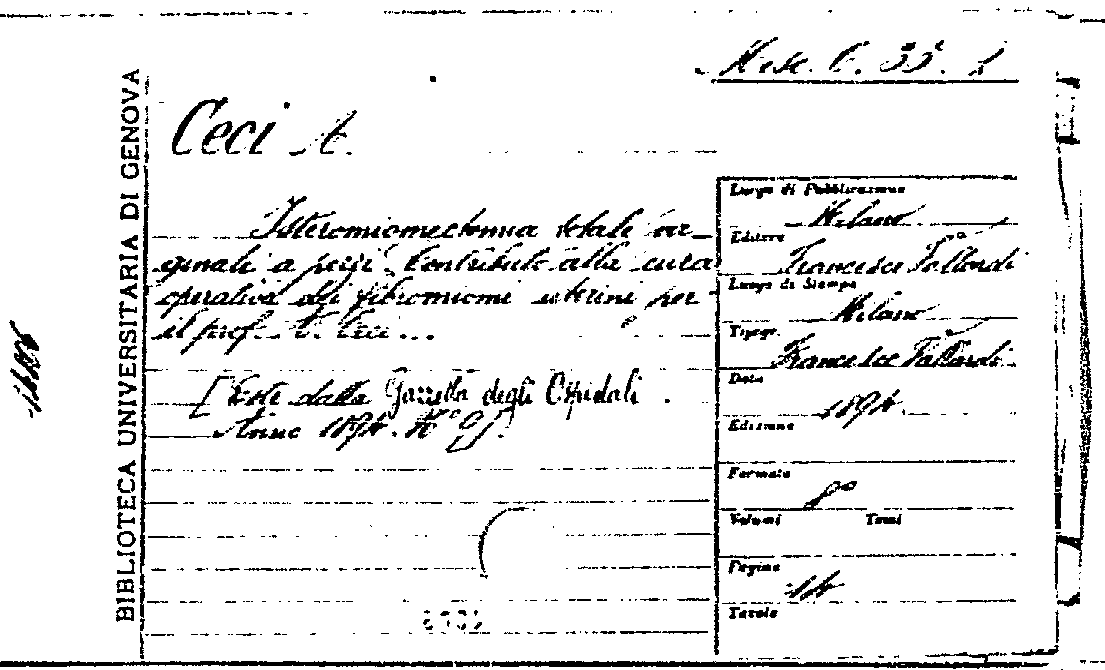 Misc. C. 33. 2
BIBLIOTECA UNIVERSITARIA DI GENOVA
Ceci A.
Isteromiomectomia totale va-
ginale a pezzi. Contributo alla cura
operativa dei fibromiomi uterini per
il prof. A. Ceci...
[Estr. dalla Gazzetta degli Ospidali
Anno 1894. N° 95.
Luogo di Pubblicazione
Milano
Editore
Francesco Vallardi
Luogo di Stampa
Milano
Tipogr.
Francesco Vallardi
Data
1894
Edizione
Formato
8°
Volumi Tomi
Pagine
14
Tavole